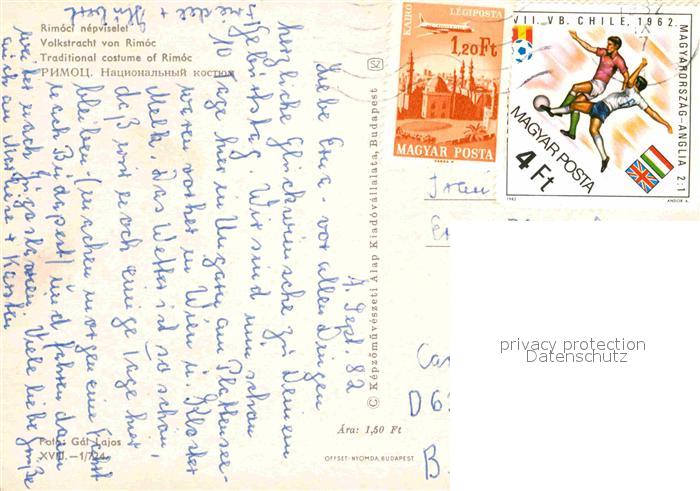 Rimóci népviselet
Volkstracht von Rimóc
Traditional costume of Rimóc
РИМОЦ. Национальный костюм
7. Sept. 82
Liebe Erica - vor allen Dingen
herzliche Glückwünsche zu Deinem
Geburtstag. Wir sind nun schon
10 Tage hier in Ungarn am Plattensee -
waren vorher in Wien u. Kloster
Melk. Das Wetter ist so schön,
daß wir noch einige Tage hier
bleiben - (machen morgen eine Fahrt
nach Budapest) und fahren dann
weiter nach Jugoslawien. Viele liebe Grüße
auch an
Foto: Gál Lajos
XVIII.—1/724
SZ
© Képzőművészeti Alap Kiadóvállalata, Budapest
Ára: 1,50 Ft
OFFSET-NYOMDA, BUDAPEST
KAIRÓ
LÉGIPOSTA
1,20 Ft
MAGYAR POSTA
VII. VB. CHILE, 1962.
MAGYARORSZÁG-ANGLIA 2:1
MAGYAR POSTA
4 Ft
1982
D 6
B
privacy protection
Datenschutz